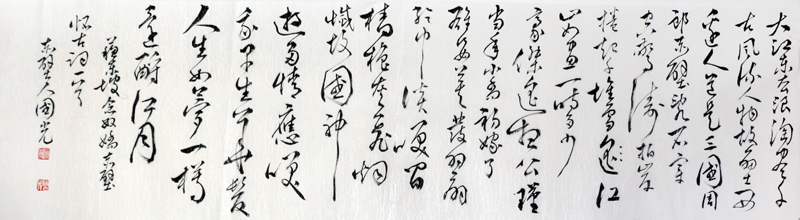 大江东去浪淘尽千
古风流人物故垒西
边人道是三國周
郎赤壁乱石穿
空惊涛拍岸
捲起千堆雪江
山如画一时多少
豪傑遥想公瑾
当年小乔初嫁了
雄姿英发羽扇
纶巾谈笑间
樯橹灰飞烟
故國神
遊多情應笑
我早生华髮
人生如梦一樽
还酹江月
苏东坡念奴娇赤壁
怀古词一首
赤壁人國光